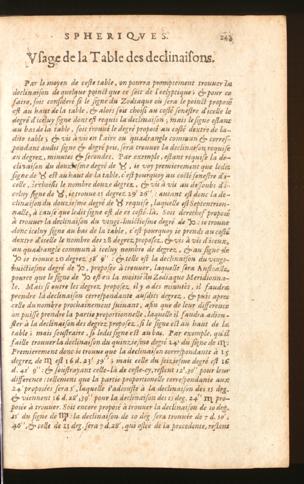 SPHERIQVES. 243
Vsage de la Table des declinaisons.
Par le moyen de ceste table, on pourra promptement trouuer la
declinaison de quelque poinct que ce soit de l'eclyptique; & pour ce
faire, soit consideré si le signe du Zodiaque où sera le poinct proposé
est au haut de la table, &, alors soit choisi au costé senestre d'icelle le
degré d'iceluy signe dont est requis la declinaison; mais le signe estant
au bas de la table, soit trouué le degré proposé au costé dextre de la-
dite table; & vis à vis en l'aire ou quadrangle commun & corres-
pondant audit signe & degré pris, sera trouuee la declinaison requise
en degrez, minutes & secondes. Par exemple, estant requise la de-
clinaison du douziesme degré de ♉, ie voy premierement que ledit
signe de ♉ est au haut de la table, c'est pourquoy au costé senestre d'i-
celle, ie choisis le nombre douze degrez, & vis à vis au dessous d'i-
celuy signe de ♉, ie trouue 15 degrez 28' 26'', autant est donc la de-
clinaison du douziesme degré de ♉ requise, laquelle est Septentrion-
nale, à cause que ledit signe est de ce costé là. Soit derechef proposé
à trouuer la declinaison du vingt-huictiesme degré de ♑: ie trouue
donc iceluy signe au bas de la table, c'est pourquoy ie prends au costé
dextre d'icelle le nombre des 28 degrez proposez, & vis à vis d'iceux,
au quadrangle commun à iceluy nombre de degrez, & au signe de
♑ ie trouue 20 degrez, & telle est la declinaison du vingt-
huictiesme degré de ♑, proposee à trouuer, laquelle sera Australe,
pource que le signe de ♑ est en la moitié du Zodiaque Meridionna-
le. Mais si outre les degrez proposez, il y a des minutes, il faudra
prendre la declinaison correspondante ausdits degrez, & puis apres
celle du nombre prochainement suiuant, afin que de leur difference
on puisse prendre la partie proportionnelle, laquelle il faudra adiou-
ster à la declinaison des degrez proposez, si le signe est au haut de la
table; mais soustraire, si ledit signe est au bas. Par exemple, qu'il
faille trouuer la declinaison du quinziesme degré 24' du signe de ♏:
Premierement donc ie trouue que la declinaison correspondante à 15
degrez, de ♏ est 16 d. 23' ; mais celle du seiziesme degré est 16
d. 41' 9'': & soustrayant celle-là de ceste-cy, restent 17' 30'' pour leur
difference: tellement que la partie proportionnelle correspondante aux
24 proposees sera 7', laquelle i'adiouste à la declinaison des 15 deg.
& viennent 16 d. 30'' pour la declinaison des 15 deg. 24'' ♏ pro-
posee à trouuer. Soit encore proposé à trouuer la declinaison de 10 deg.
du signe de ♍: la declinaison de 10 deg. sera trouuee de 7 d. 50',
46'', & celle de 11 deg. sera 7 d. 28', qui ostee de la precedente, restent